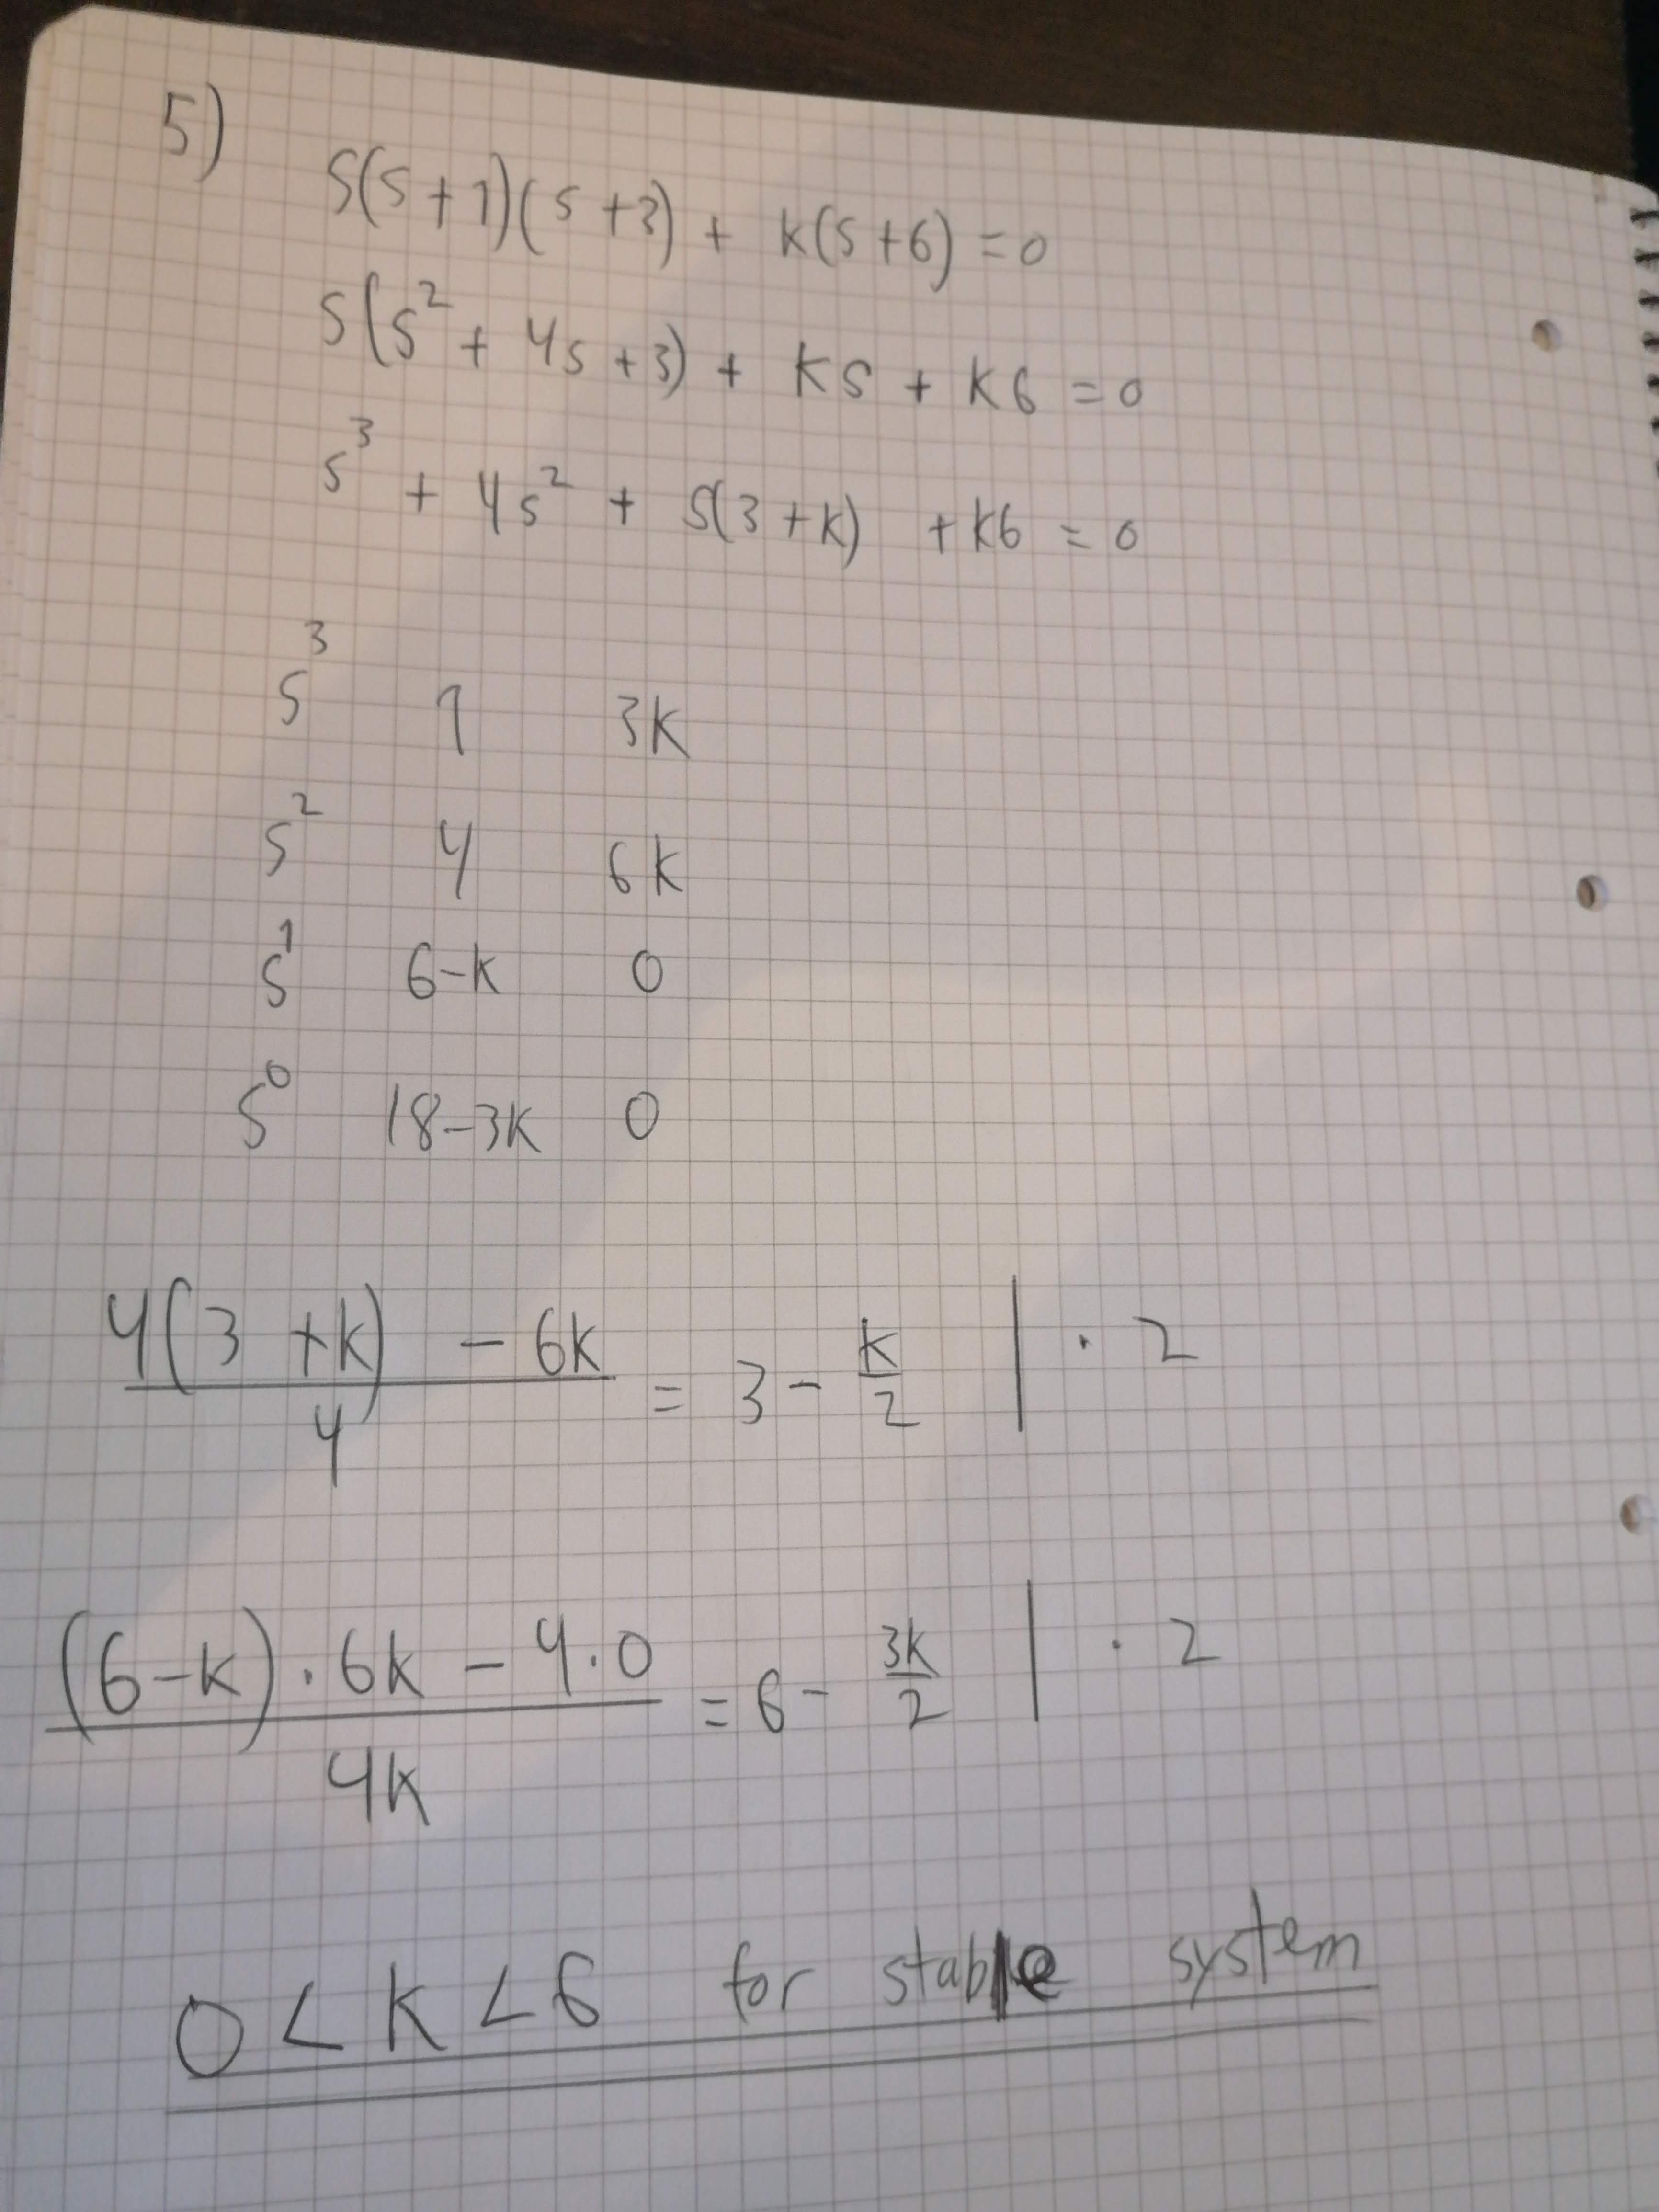 5)
s(s+1)(s+3) + k(s+6) = 0
s(s² + 4s + 3) + ks + k6 = 0
s³ + 4s² + s(3+k) + k6 = 0
s³ 1 3k
s² 4 6k
s¹ 6-k 0
s⁰ 18-3k 0
4(3+k) - 6k / 4 = 3 - k/2 | · 2
(6-k)·6k - 4·0 / 4k = 6 - 3k/2 | · 2
0 < k < 6 for stable system